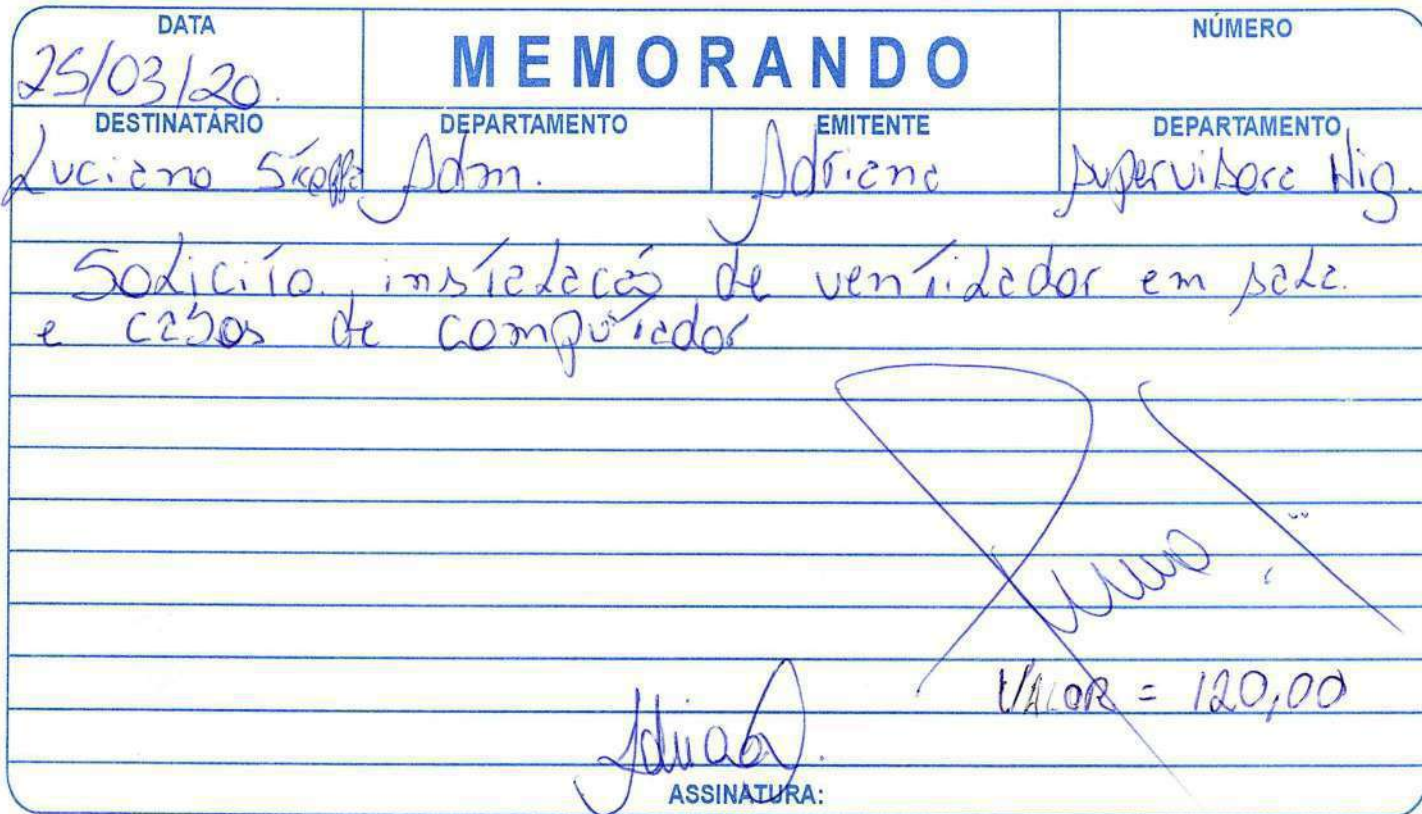 DATA
25/03/20.
MEMORANDO
NÚMERO
DESTINATÁRIO
Luciano
DEPARTAMENTO
Adm.
EMITENTE
Adriana
DEPARTAMENTO
Supervisora Hig.
Solicito instalação de ventilador em sala.
e cabos de computador
VALOR = 120,00
ASSINATURA: